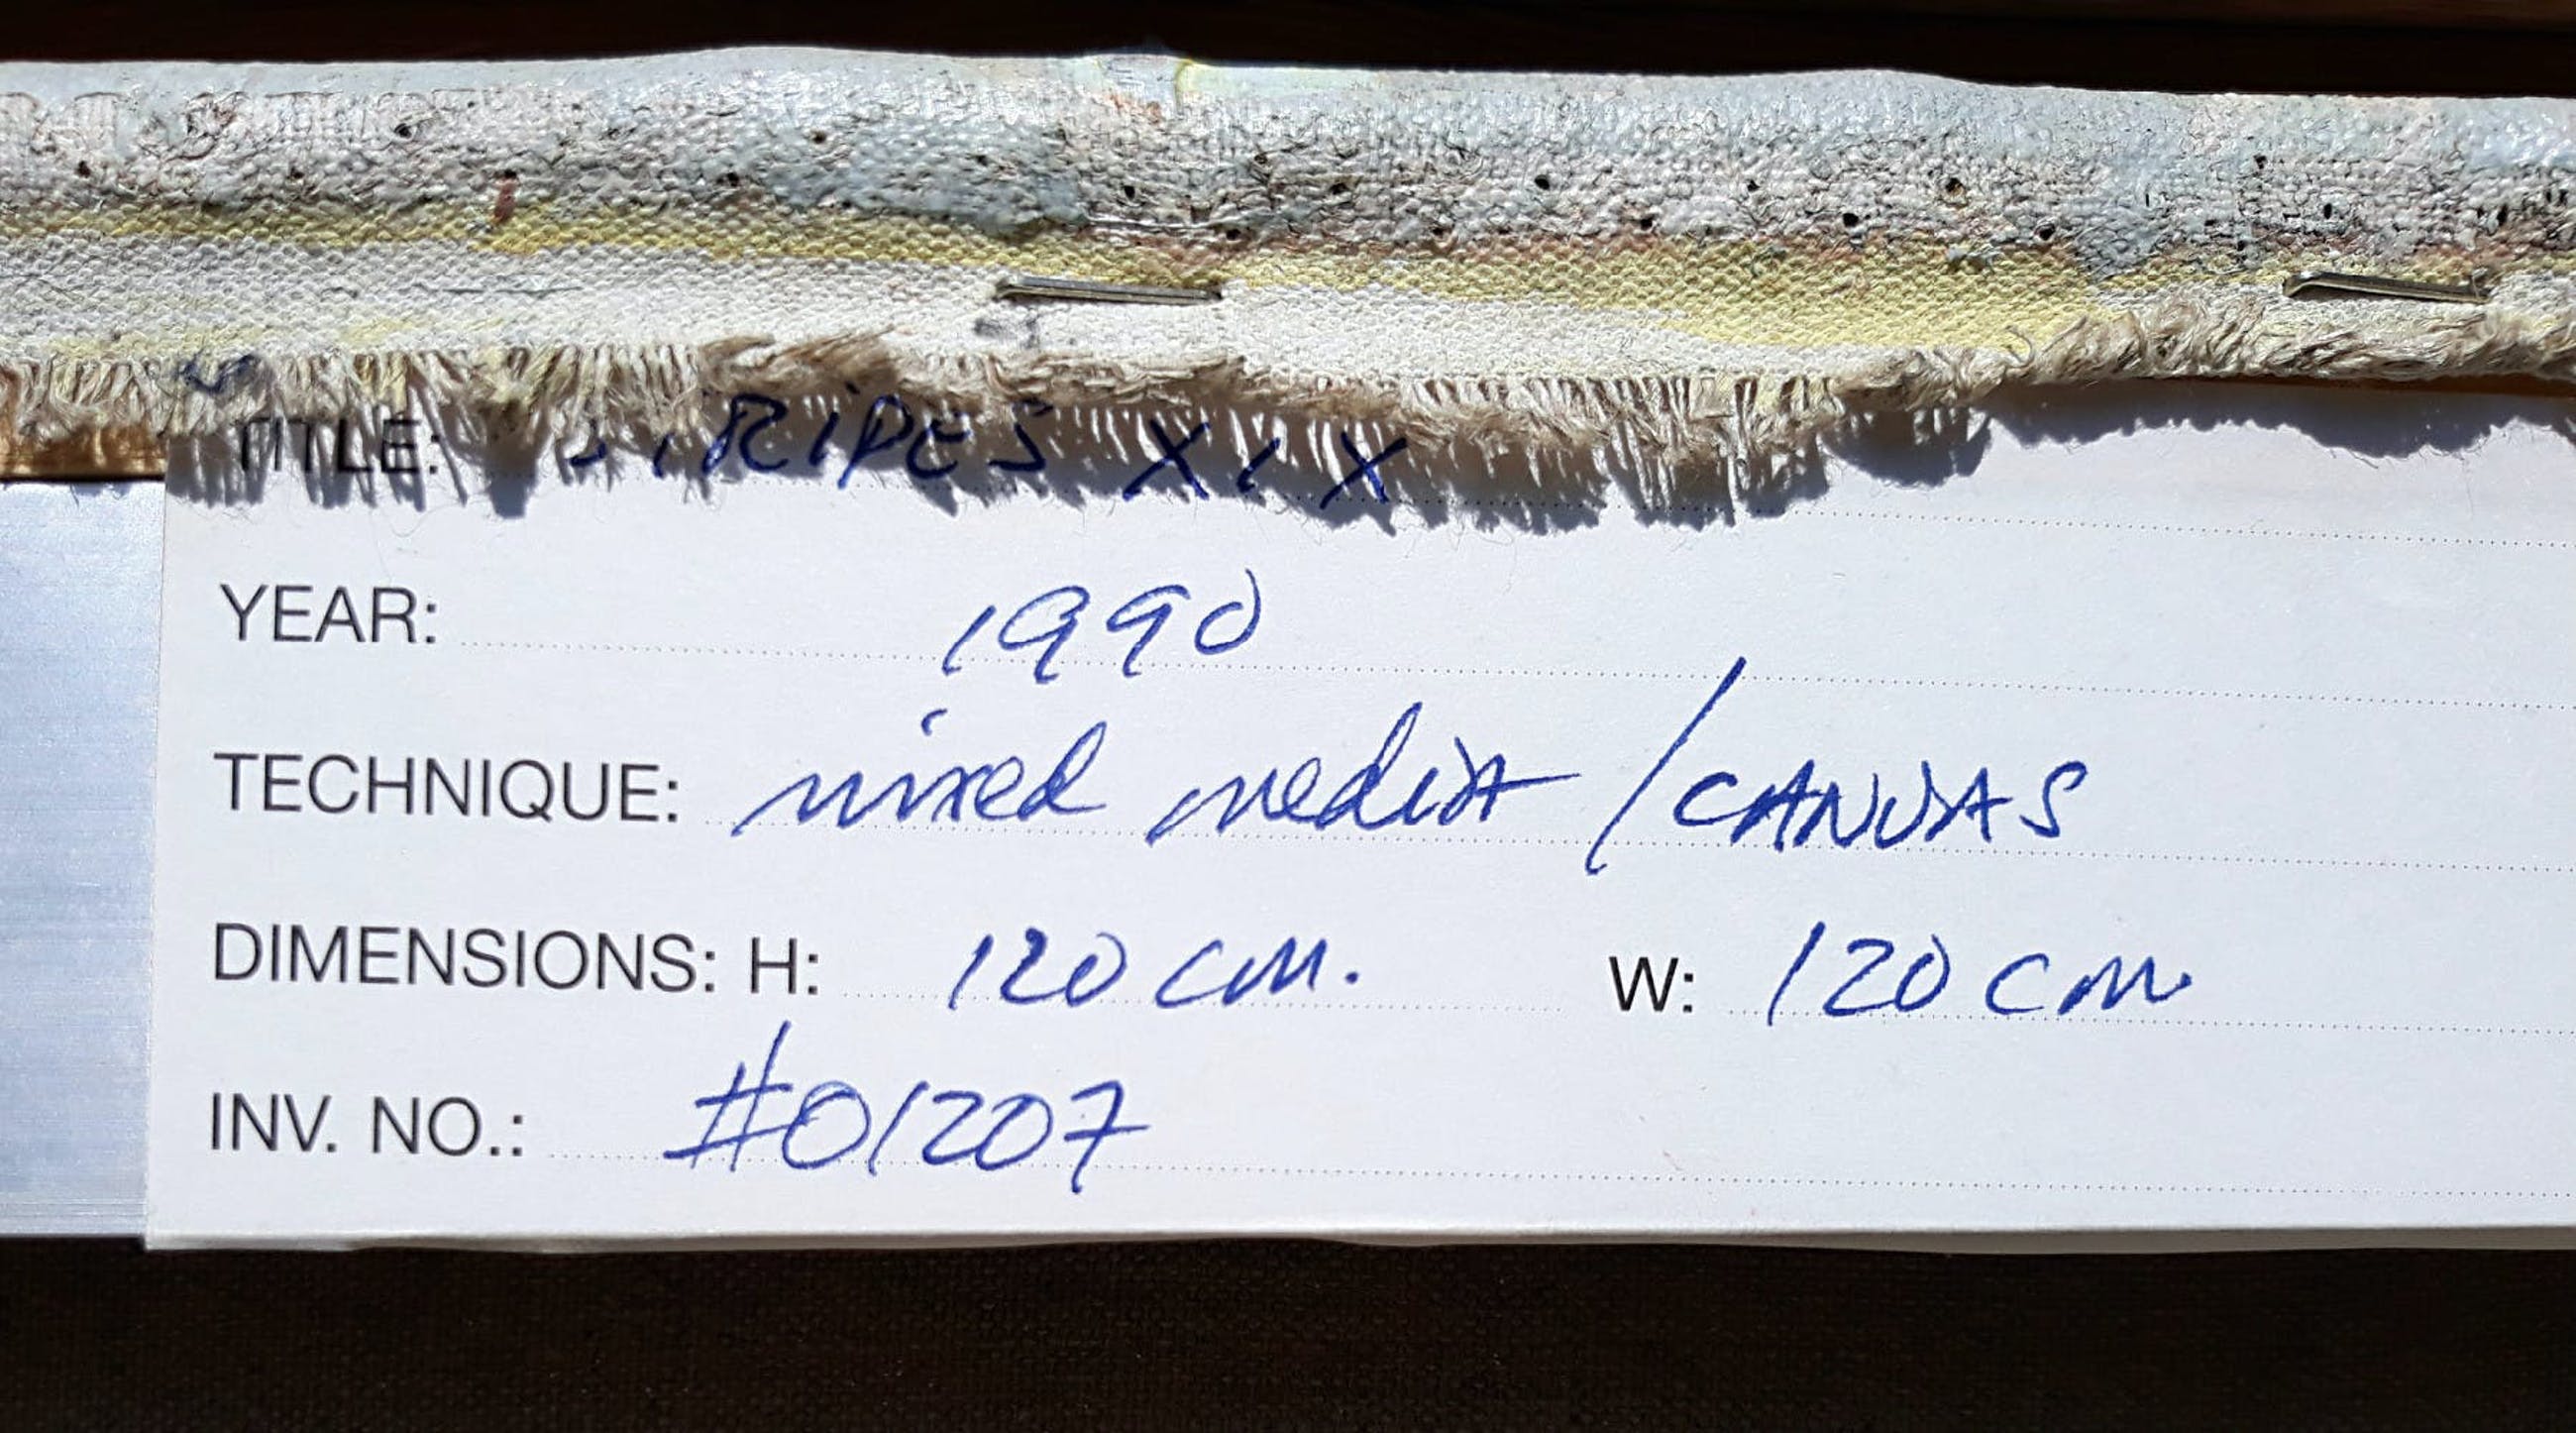 TITLE: STRIPES XIX
YEAR: 1990
TECHNIQUE: mixed media / CANVAS
DIMENSIONS: H: 120 cm. W: 120 cm.
INV. NO.: #01207